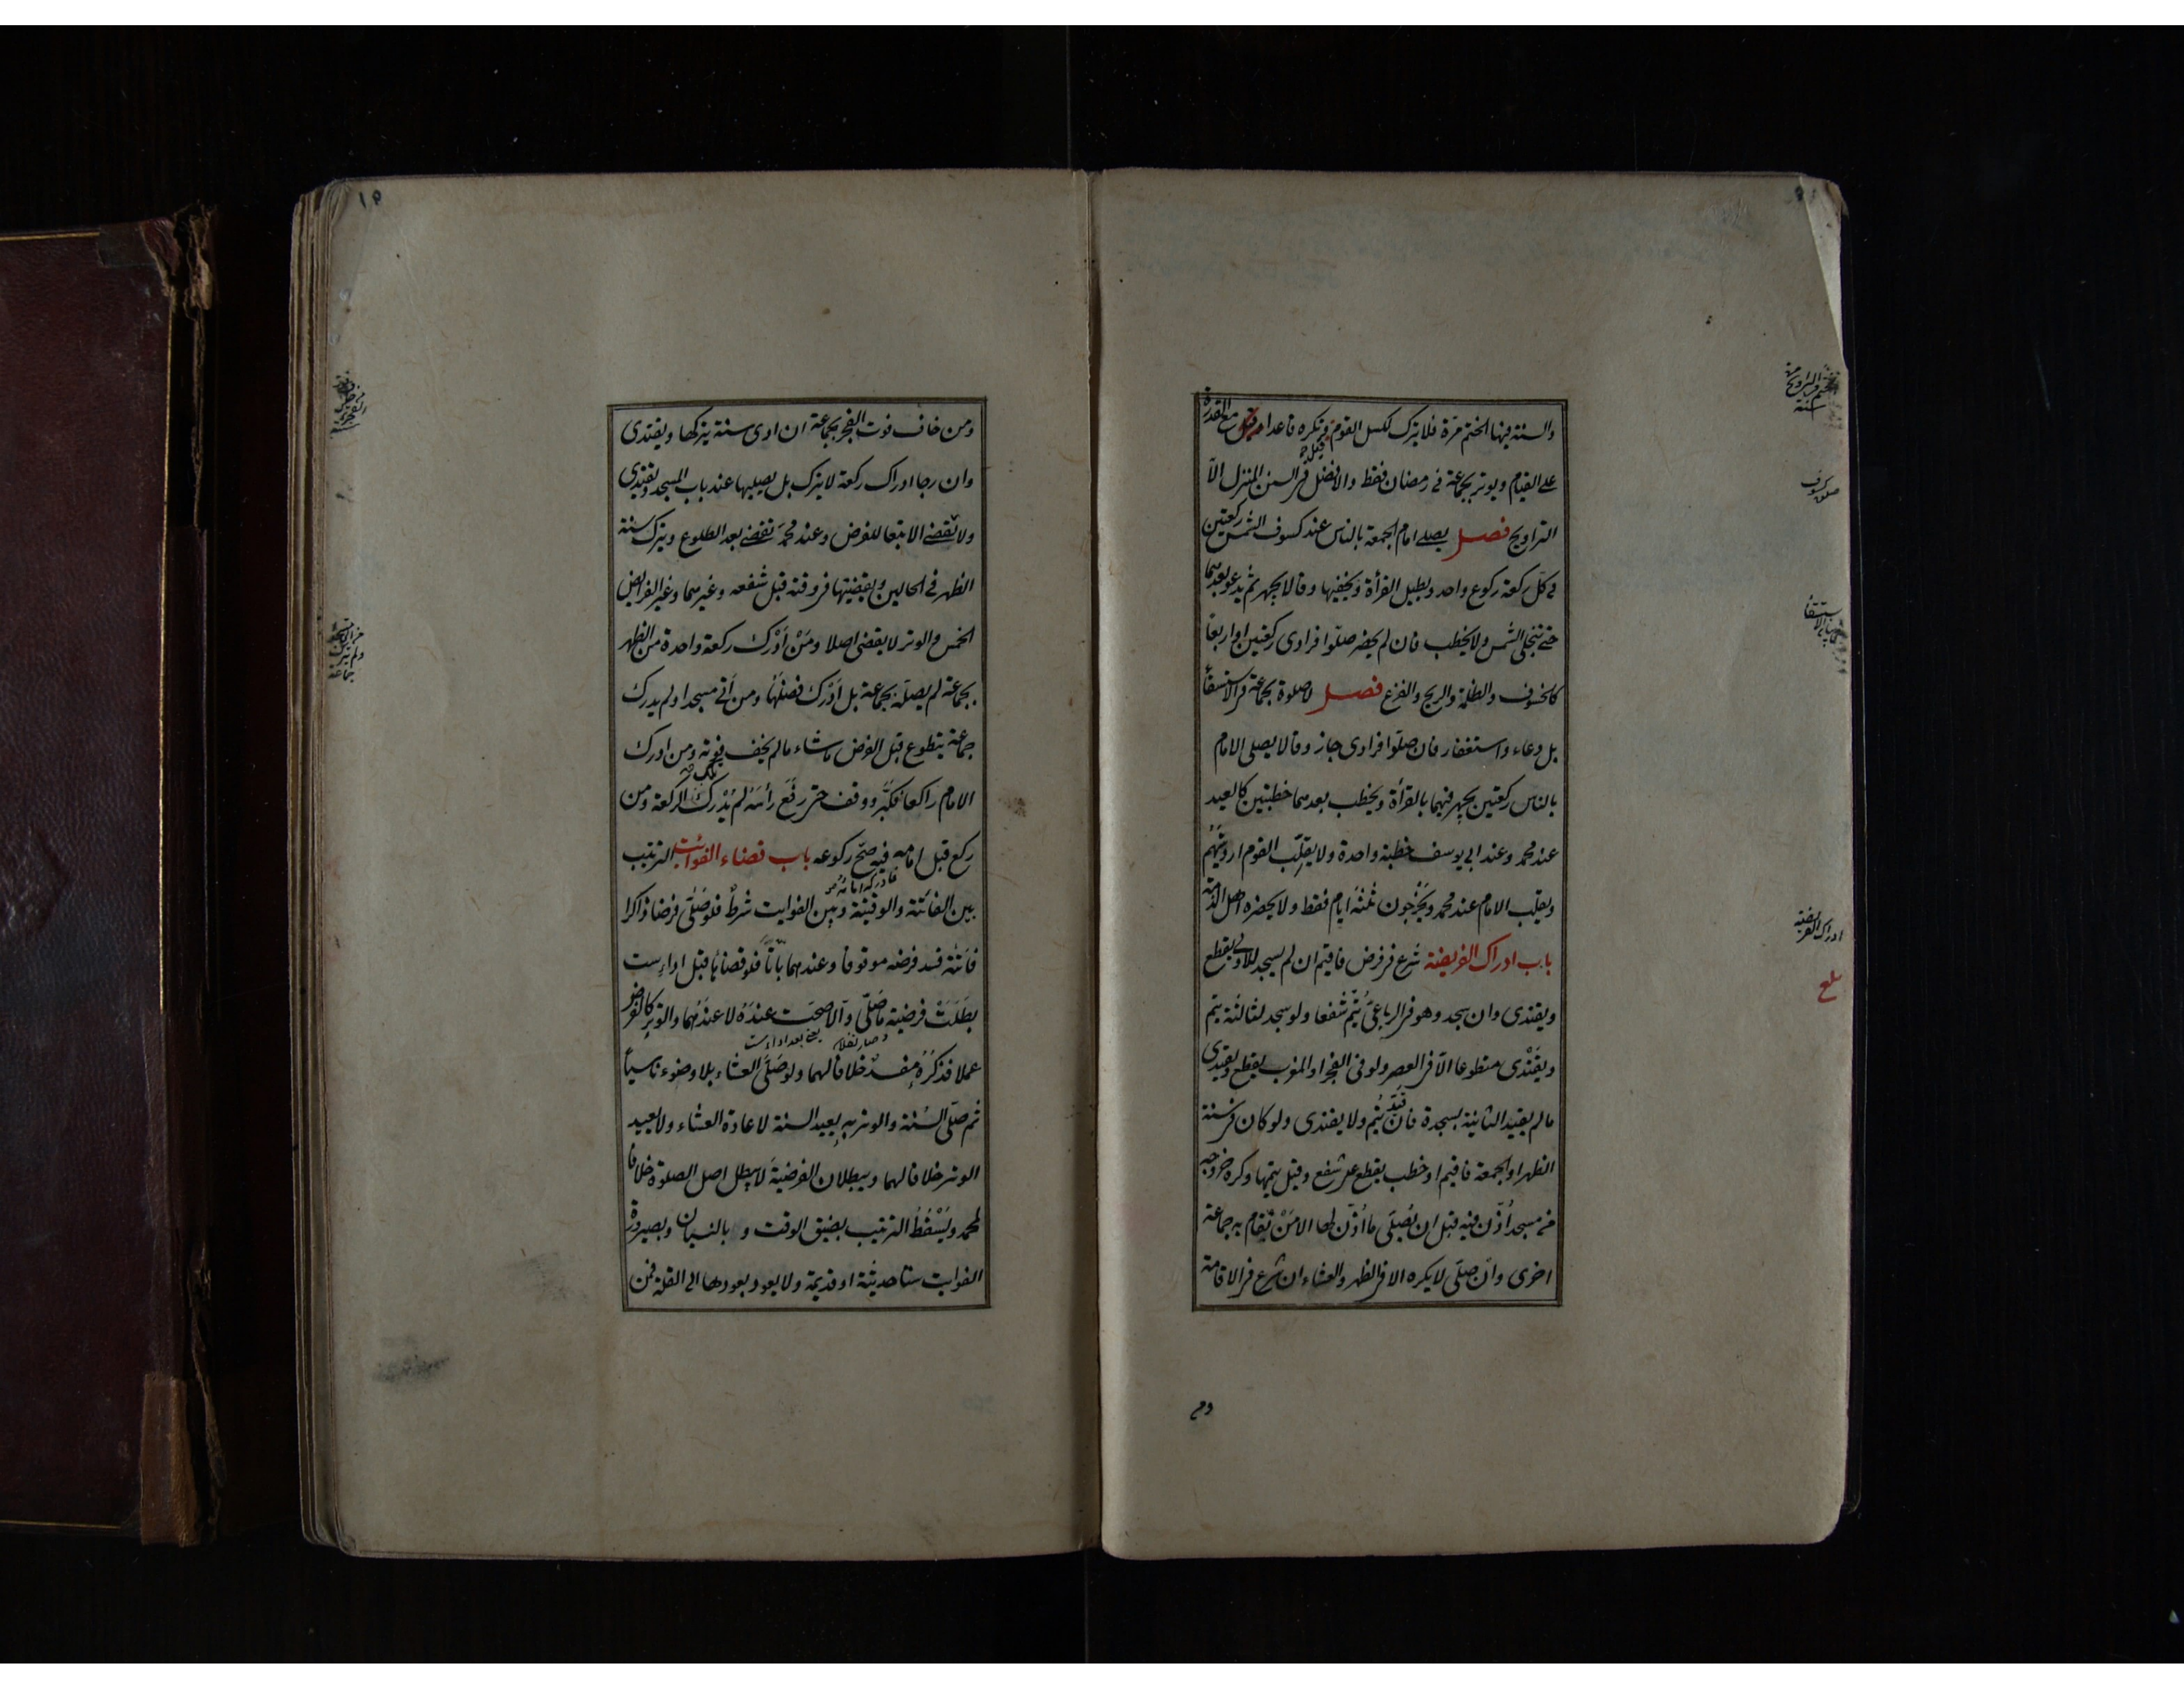 والسنة فيها الختم مرة فلا يترك لكسل القوم وتكره قاعدا مع القدرة
على القيام ويوتر بجماعة فى رمضان فقط والافضل فى السنن المنزل الا
التراويح فصل يصلى امام الجمعة بالناس عند كسوف الشمس ركعتين
فى كل ركعة ركوع واحد ويطيل القرأة ويخفيها وقالا يجهر ثم يدعو بعدهما
حتى تنجلى الشمس ولا يخطب فان لم يحضر صلوا فرادى ركعتين او اربعا
كالخسوف والظلمة والريح والفزع فصل لا صلوة بجماعة فى الاستسقأ
بل دعاء واستغفار فان صلوا فرادى جاز وقالا يصلى الامام
بالناس ركعتين يجهر فيهما بالقرأة ويخطب بعدهما خطبتين كالعيد
عند محمد وعند ابى يوسف خطبة واحدة ولا يقلب القوم ارديتهم
ويقلب الامام عند محمد ويخرجون ثلثة ايام فقط ولا يحضره اهل الذمة
باب ادراك الفريضة شرع فى فرض فاقيم ان لم يسجد للاولى يقطع
ويقتدى وان سجد وهو فى الرباعى يتم شفعا ولو سجد لثالثة يتم
ويقتدى متطوعا الا فى العصر ولو فى الفجر او المغرب يقطع ويقتدى
مالم يقيد الثانية بسجدة فان قيد يتم ولا يقتدى ولو كان فى سنة
الظهر او الجمعة فاقيم او خطب يقطع على شفع وقيل يتمها وكره خروجه
من مسجد أذن فيه قبل ان يصلى ما أذن لها الا من تقام به جماعة
اخرى وان صلى لا يكره الا فى الظهر والعشاء ان شرع فى الاقامة
ادراك الفريضة
بلغ
ومن
ومن خاف فوت الفجر بجماعة ان ادى سنة يتركها ويقتدى
وان رجا ادراك ركعة لا يترك بل يصليها عند باب المسجد ويقتدى
ولا تقضى الا تبعا للفرض وعند محمد تقضى بعد الطلوع ويترك سنة
الظهر فى الحالين ويقضيها فى وقته قبل شفعه وغيرهما وغير الفرايض
الخمس والوتر لا يقضى اصلا ومن أدرك ركعة واحدة من الظهر
بجماعة لم يصله بجماعة بل أدرك فضلها ومن أتى مسجدا ولم يدرك
جماعة يتطوع قبل الفرض ماشاء مالم يخف فوته ومن ادرك
الامام راكعا فكبر ووقف حتى رفع رأسه لم يدرك تلك الركعة ومن
ركع قبل امامه فادركه امامه فيه صح ركوعه باب قضاء الفوائت الترتيب
بين الفائتة والوقتية وبين الفوايت شرط فلو صلى فرضا ذاكرا
فائتة فسد فرضه موقوفا وعندهما باتا فلو قضاها قبل اداء ست
بطلت فرضية ما صلى والا صحت عنده لا عندهما والوتر كالفرض
عملا فذكره مفسد خلافا لهما ولو صلى العشاء بلا وضوء ناسيا
ثم صلى السنة والوتر به يعيد السنة لاعادة العشاء ولا يعيد
الوتر خلافا لهما ويبطلان الفرضية لا يبطل اصل الصلوة خلافا
لمحمد ويسقط الترتيب بضيق الوقت و بالنسيان وبصيرورة
الفوايت ستا حديثة او قديمة ولا يعود بعودها الى القلة فمن